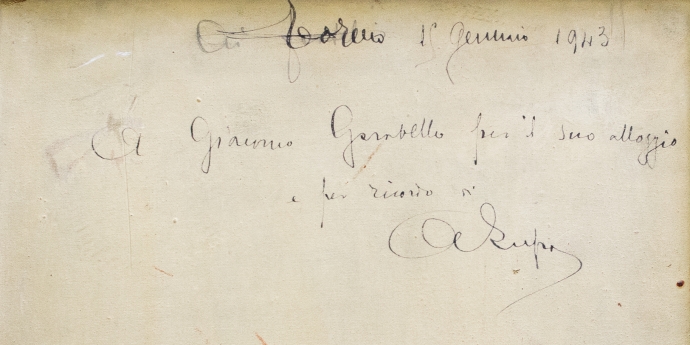 Torino 15 Gennaio 1943
A Giacomo Garabello per il suo alloggio
e per ricordo di